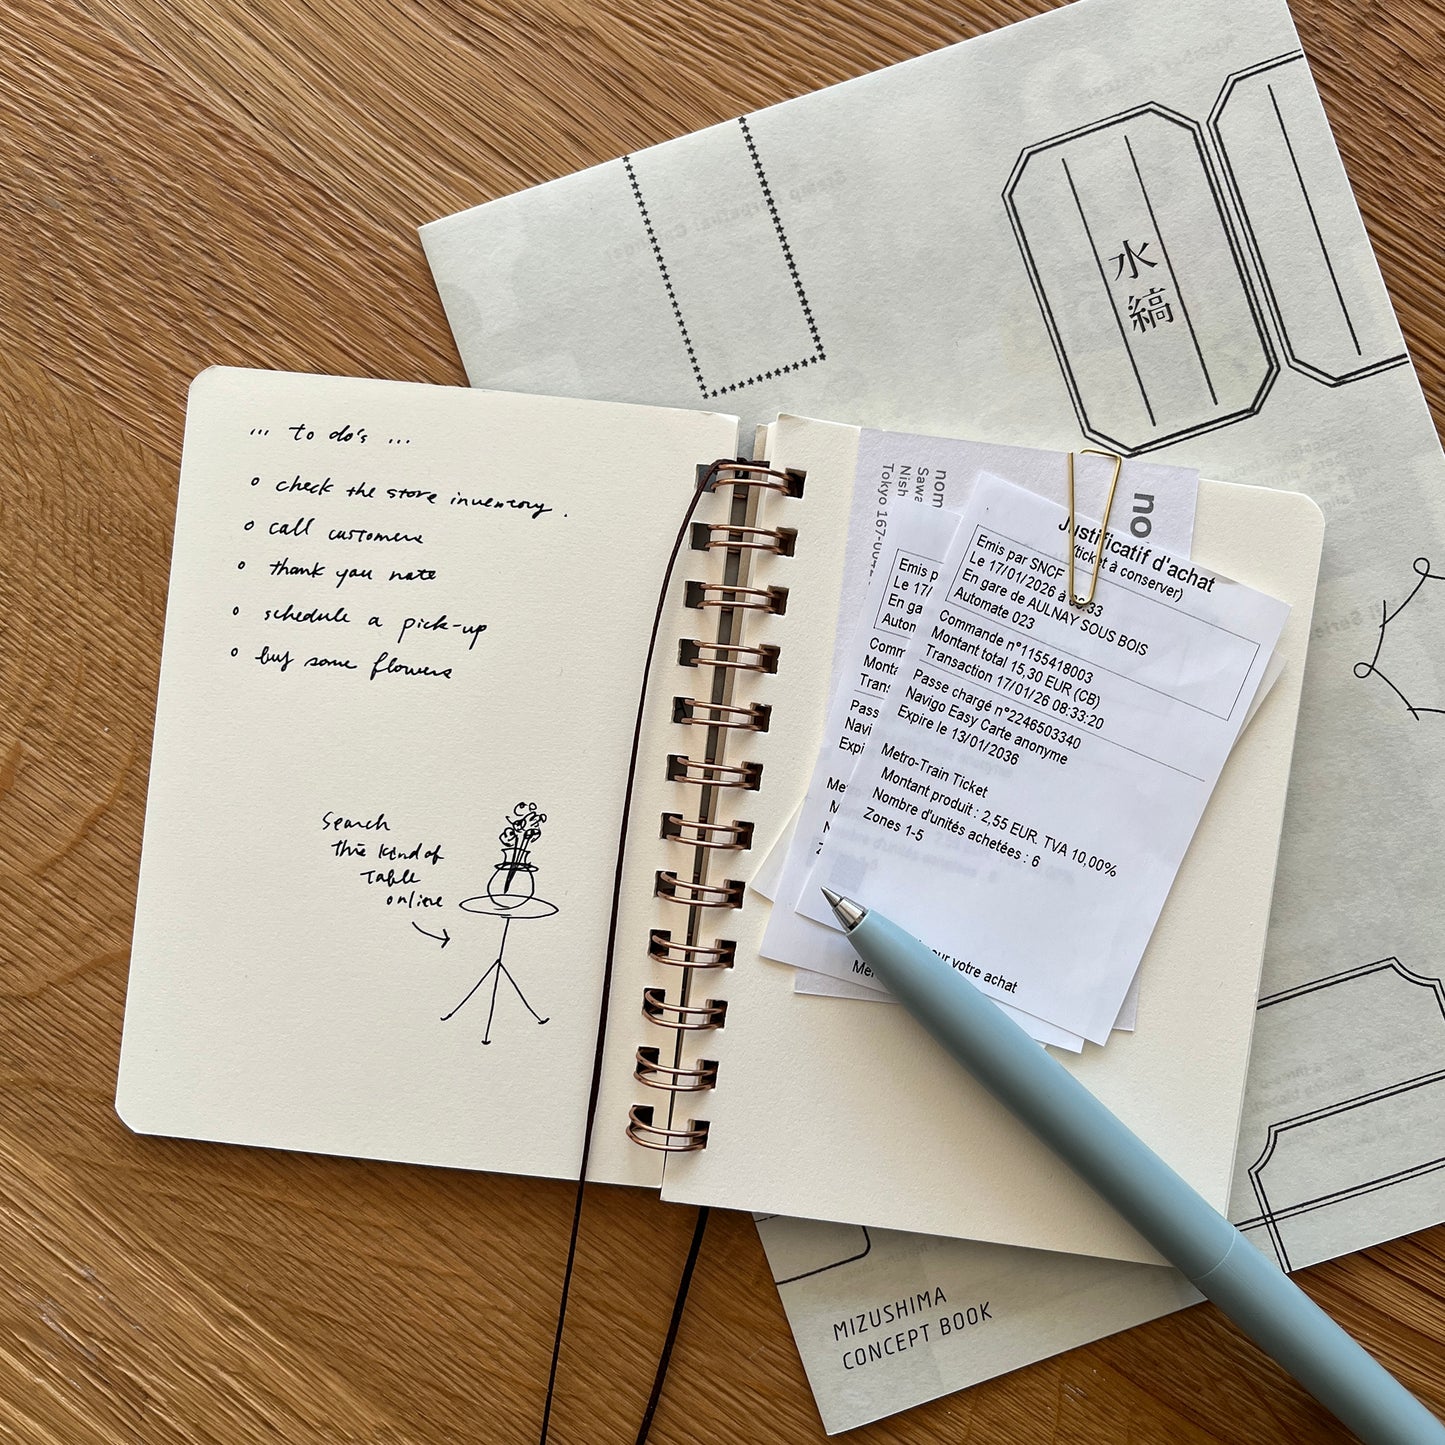 ... to do's ...
o check the store inventory.
o call customers
o thank you note
o schedule a pick-up
o buy some flowers
Search
this kind of
table
online
nom
Sawa
Nish
Tokyo 167-0042
no
Emis p
Le 17/
En ga
Autom
Comm
Monta
Trans
Pass
Navi
Expi
Me
M
N
Z
Mer
Justificatif d'achat
(ticket à conserver)
Emis par SNCF
Le 17/01/2026 à 08:33
En gare de AULNAY SOUS BOIS
Automate 023
Commande n°1155418003
Montant total 15,30 EUR (CB)
Transaction 17/01/26 08:33:20
Passe chargé n°2246503340
Navigo Easy Carte anonyme
Expire le 13/01/2036
Metro-Train Ticket
Montant produit : 2,55 EUR. TVA 10,00%
Nombre d'unités achetées : 6
Zones 1-5
votre achat
水縞
MIZUSHIMA
CONCEPT BOOK